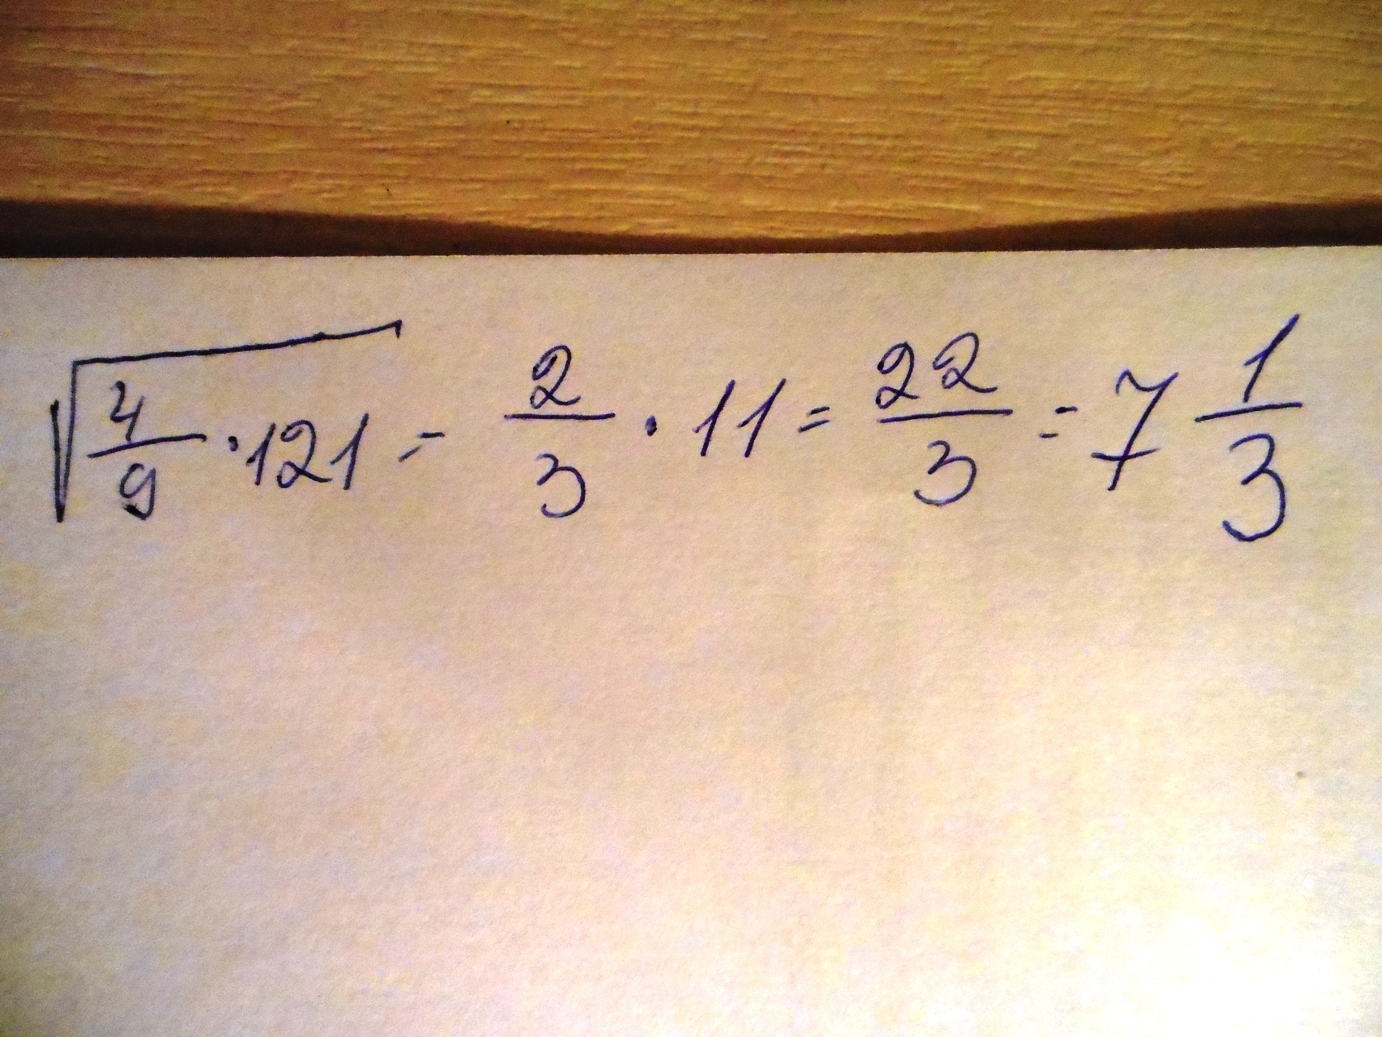 √(4/9 · 121) = 2/3 · 11 = 22/3 = 7 1/3